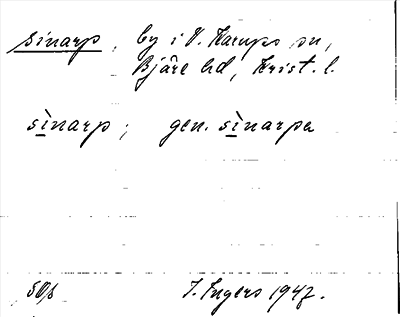 Sinarp, by i V. Karups sn,
Bjäre hd, Krist. l.
sìnarp; gen. sìnarpa
I. Ingers 1947.